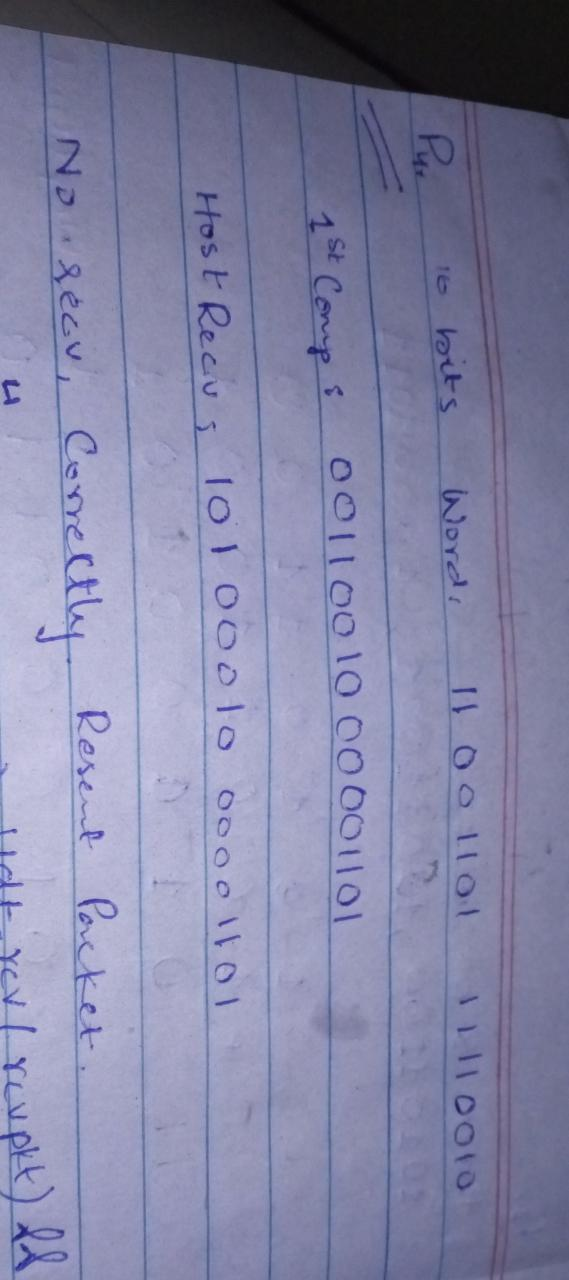 P4, 16 bits Word, 11001101 11110010
1st Comp : 0011001000001101
Host Recv ; 10100010 00001101
No. recv, Correctly. Resent Packet.
udt_rcv(rcvpkt) &&